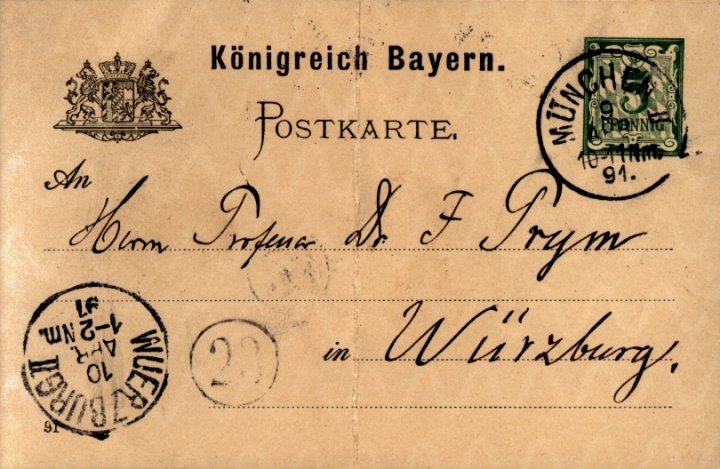 Königreich Bayern.
5
PFENNIG
MÜNCHEN II
9
APR
10-11 Nm.
91.
POSTKARTE.
An
Herrn Professor Dr F Prym
in Würzburg.
WUERZBURG II
10
APR.
1-2 Nm.
91
23
91